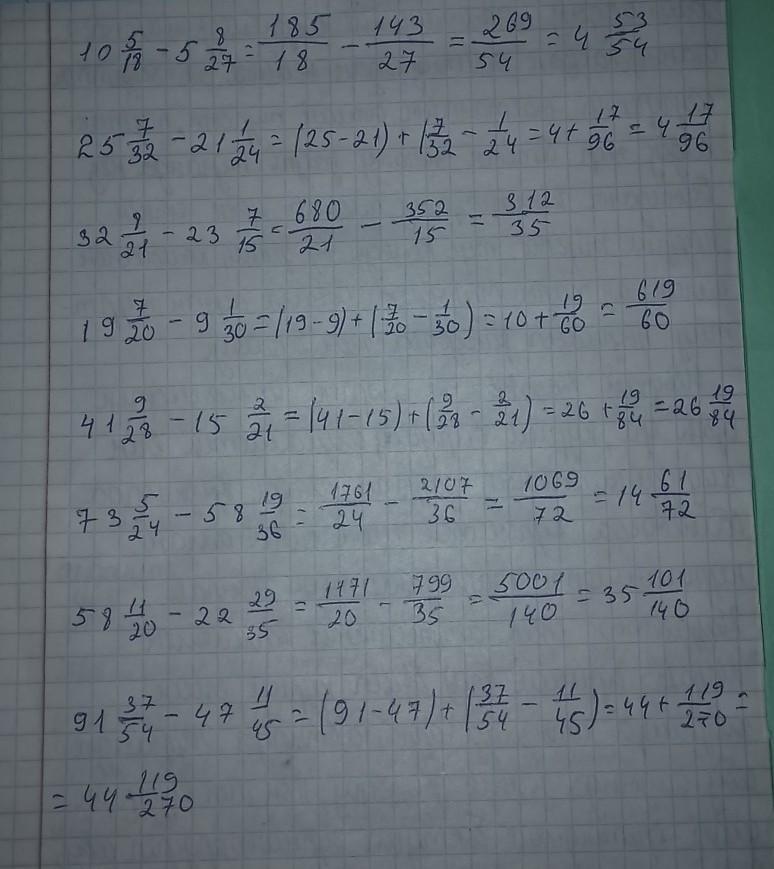 10 5/18 - 5 8/27 = 185/18 - 143/27 = 269/54 = 4 53/54
25 7/32 - 21 1/24 = (25-21) + (7/32 - 1/24 = 4 + 17/96 = 4 17/96
32 8/21 - 23 7/15 = 680/21 - 352/15 = 312/35
19 7/20 - 9 1/30 = (19-9) + (7/20 - 1/30) = 10 + 19/60 = 619/60
41 9/28 - 15 2/21 = (41-15) + (9/28 - 2/21) = 26 + 19/84 = 26 19/84
73 5/24 - 58 19/36 = 1761/24 - 2107/36 = 1069/72 = 14 61/72
58 11/20 - 22 29/35 = 1171/20 - 799/35 = 5001/140 = 35 101/140
91 37/54 - 47 11/45 = (91-47) + (37/54 - 11/45) = 44 + 119/270 =
= 44 119/270